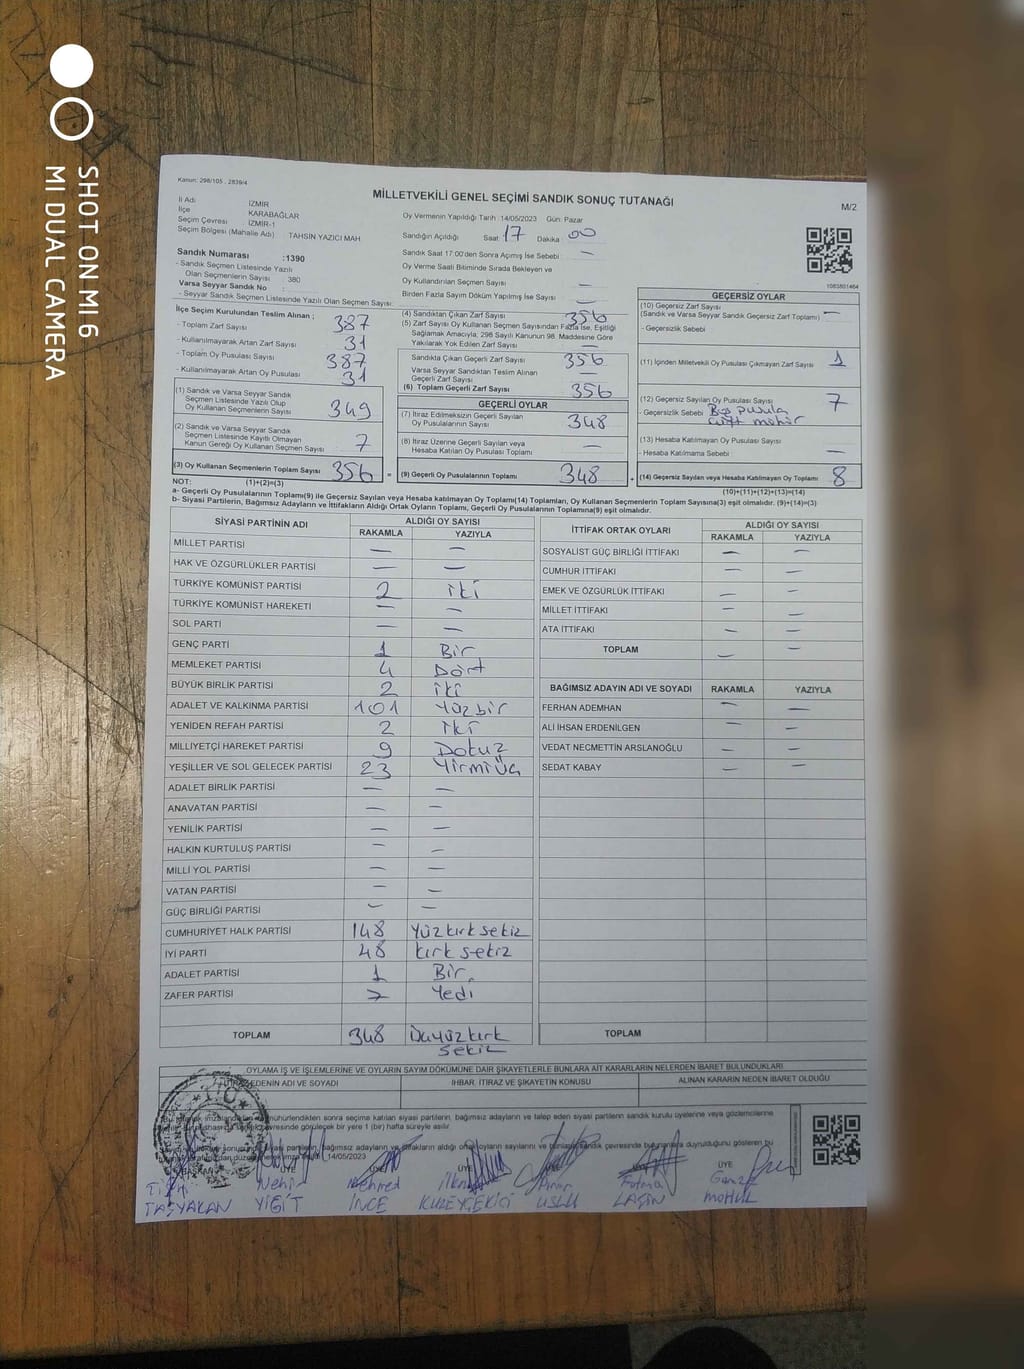 SHOT ON MI 6
MI DUAL CAMERA
Kanun: 298/105 , 2839/4
MİLLETVEKİLİ GENEL SEÇİMİ SANDIK SONUÇ TUTANAĞI
M/2
İl Adı İZMİR
İlçe KARABAĞLAR
Seçim Çevresi İZMİR-1
Seçim Bölgesi (Mahalle Adı) TAHSIN YAZICI MAH
Oy Vermenin Yapıldığı Tarih :14/05/2023 Gün: Pazar
Sandığın Açıldığı Saat 17 Dakika 00
Sandık Saat 17:00'den Sonra Açılmış İse Sebebi —
Oy Verme Saati Bitiminde Sırada Bekleyen ve
Oy Kullandırılan Seçmen Sayısı —
Birden Fazla Sayım Döküm Yapılmış İse Sayısı —
1083801464
Sandık Numarası :1390
- Sandık Seçmen Listesinde Yazılı
Olan Seçmenlerin Sayısı : 380
Varsa Seyyar Sandık No
- Seyyar Sandık Seçmen Listesinde Yazılı Olan Seçmen Sayısı
İlçe Seçim Kurulundan Teslim Alınan ;
- Toplam Zarf Sayısı 387
- Kullanılmayarak Artan Zarf Sayısı 31
- Toplam Oy Pusulası Sayısı 387
- Kullanılmayarak Artan Oy Pusulası 31
(1) Sandık ve Varsa Seyyar Sandık
Seçmen Listesinde Yazılı Olup
Oy Kullanan Seçmenlerin Sayısı 349
(2) Sandık ve Varsa Seyyar Sandık
Seçmen Listesinde Kayıtlı Olmayan
Kanun Gereği Oy Kullanan Seçmen Sayısı 7
(3) Oy Kullanan Seçmenlerin Toplam Sayısı 356 =
(4) Sandıktan Çıkan Zarf Sayısı 356
(5) Zarf Sayısı Oy Kullanan Seçmen Sayısından Fazla İse, Eşitliği
Sağlamak Amacıyla; 298 Sayılı Kanunun 98. Maddesine Göre
Yakılarak Yok Edilen Zarf Sayısı —
Sandıkta Çıkan Geçerli Zarf Sayısı 356
Varsa Seyyar Sandıktan Teslim Alınan
Geçerli Zarf Sayısı —
(6) Toplam Geçerli Zarf Sayısı 356
GEÇERLİ OYLAR
(7) İtiraz Edilmeksizin Geçerli Sayılan
Oy Pusulalarının Sayısı 348
(8) İtiraz Üzerine Geçerli Sayılan veya
Hesaba Katılan Oy Pusulası Toplamı —
(9) Geçerli Oy Pusulalarının Toplamı 348 +
GEÇERSİZ OYLAR
(10) Geçersiz Zarf Sayısı
(Sandık ve Varsa Seyyar Sandık Geçersiz Zarf Toplamı) —
- Geçersizlik Sebebi
(11) İçinden Milletvekili Oy Pusulası Çıkmayan Zarf Sayısı 1
(12) Geçersiz Sayılan Oy Pusulası Sayısı 7
- Geçersizlik Sebebi Boş pusula
çift mühür
(13) Hesaba Katılmayan Oy Pusulası Sayısı
- Hesaba Katılmama Sebebi —
(14) Geçersiz Sayılan veya Hesaba Katılmayan Oy Toplamı 8
NOT: (1)+(2)=(3)
(10)+(11)+(12)+(13)=(14)
a- Geçerli Oy Pusulalarının Toplamı(9) ile Geçersiz Sayılan veya Hesaba katılmayan Oy Toplamı(14) Toplamları, Oy Kullanan Seçmenlerin Toplam Sayısına(3) eşit olmalıdır. (9)+(14)=(3)
b- Siyasi Partilerin, Bağımsız Adayların ve İttifakların Aldığı Ortak Oyların Toplamı, Geçerli Oy Pusulalarının Toplamına(9) eşit olmalıdır.
SİYASİ PARTİNİN ADI ALDIĞI OY SAYISI
RAKAMLA YAZIYLA
MİLLET PARTİSİ — —
HAK VE ÖZGÜRLÜKLER PARTİSİ — —
TÜRKİYE KOMÜNİST PARTİSİ 2 iki
TÜRKİYE KOMÜNİST HAREKETİ — —
SOL PARTİ — —
GENÇ PARTİ 1 Bir
MEMLEKET PARTİSİ 4 Dört
BÜYÜK BİRLİK PARTİSİ 2 iki
ADALET VE KALKINMA PARTİSİ 101 Yüzbir
YENİDEN REFAH PARTİSİ 2 iki
MİLLİYETÇİ HAREKET PARTİSİ 9 Dokuz
YEŞİLLER VE SOL GELECEK PARTİSİ 23 Yirmiüç
ADALET BİRLİK PARTİSİ — —
ANAVATAN PARTİSİ — —
YENİLİK PARTİSİ — —
HALKIN KURTULUŞ PARTİSİ — —
MİLLİ YOL PARTİSİ — —
VATAN PARTİSİ — —
GÜÇ BİRLİĞİ PARTİSİ — —
CUMHURİYET HALK PARTİSİ 148 Yüzkırksekiz
İYİ PARTİ 48 kırksekiz
ADALET PARTİSİ 1 Bir
ZAFER PARTİSİ 7 Yedi
TOPLAM 348 Üçyüzkırk
sekiz
İTTİFAK ORTAK OYLARI ALDIĞI OY SAYISI
RAKAMLA YAZIYLA
SOSYALİST GÜÇ BİRLİĞİ İTTİFAKI — —
CUMHUR İTTİFAKI — —
EMEK VE ÖZGÜRLÜK İTTİFAKI — —
MİLLET İTTİFAKI — —
ATA İTTİFAKI — —
TOPLAM — —
BAĞIMSIZ ADAYIN ADI VE SOYADI RAKAMLA YAZIYLA
FERHAN ADEMHAN — —
ALİ İHSAN ERDENİLGEN — —
VEDAT NECMETTİN ARSLANOĞLU — —
SEDAT KABAY — —
TOPLAM
OYLAMA İŞ VE İŞLEMLERİNE VE OYLARIN SAYIM DÖKÜMÜNE DAİR ŞİKAYETLERLE BUNLARA AİT KARARLARIN NELERDEN İBARET BULUNDUKLARI
EDENİN ADI VE SOYADI İHBAR, İTİRAZ VE ŞİKAYETİN KONUSU ALINAN KARARIN NEDEN İBARET OLDUĞU
mühürlendikten sonra seçime katılan siyasi partilerin, bağımsız adayların ve talep eden siyasi partilerin sandık kurulu üyelerine veya gözlemcilerine
çevresinde görülecek bir yere 1 (bir) hafta süreyle asılır.
14/05/2023
ÜYE ÜYE ÜYE ÜYE
Nehir Mehmed Pınar Fatma Gamze
TAŞYAKAN YİĞİT İNCE USLU LAÇİN